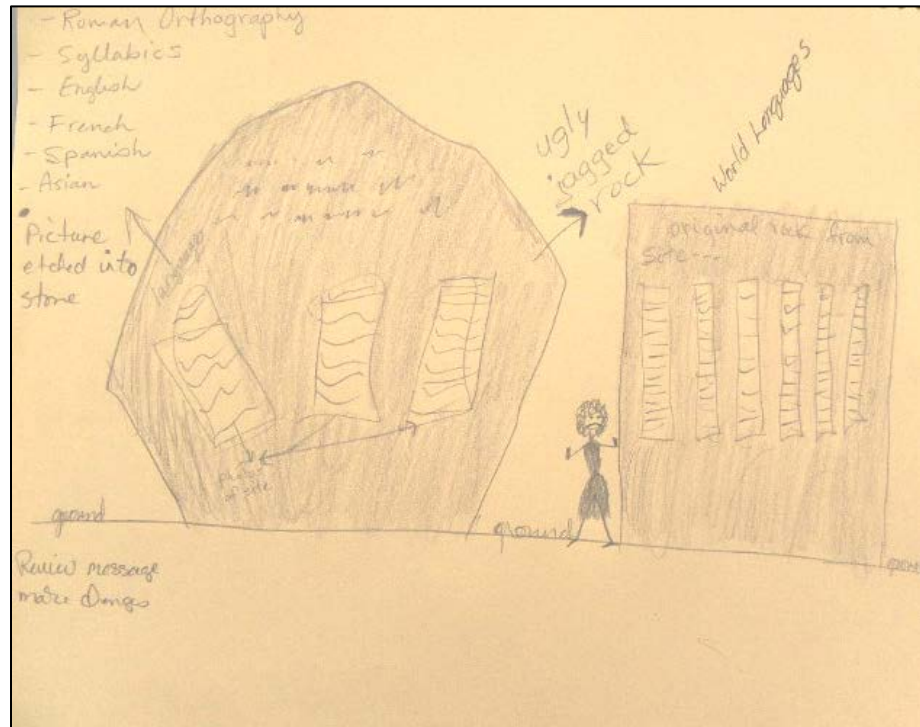 - Roman Orthography
- Syllabics
- English
- French
- Spanish
- Asian
Picture
etched into
stone
languages
ugly
jagged
rock
World Languages
original rock from
site---
of site
ground
ground
Review message
make Changes